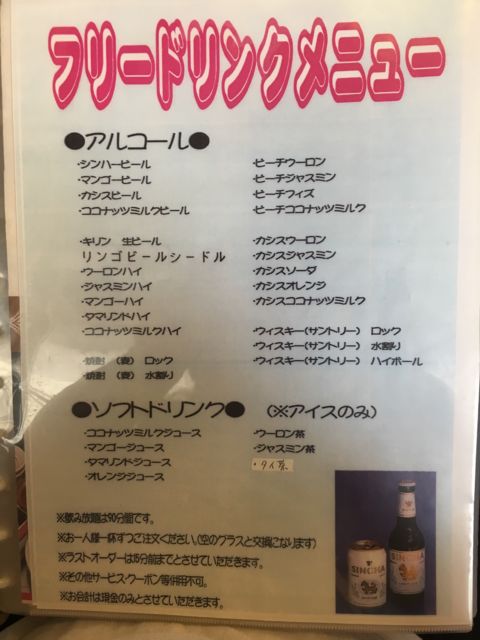 フリードリンクメニュー
●アルコール●
・シンハービール
・マンゴービール
・カシスビール
・ココナッツミルクビール
・キリン 生ビール
リンゴビールシードル
・ウーロンハイ
・ジャスミンハイ
・マンゴーハイ
・タマリンドハイ
・ココナッツミルクハイ
・焼酎 （麦） ロック
・焼酎 （麦） 水割り
・ピーチウーロン
・ピーチジャスミン
・ピーチフィズ
・ピーチココナッツミルク
・カシスウーロン
・カシスジャスミン
・カシスソーダ
・カシスオレンジ
・カシスココナッツミルク
・ウィスキー(サントリー) ロック
・ウィスキー(サントリー) 水割り
・ウィスキー(サントリー) ハイボール
●ソフトドリンク● (※アイスのみ)
・ココナッツミルクジュース
・マンゴージュース
・タマリンドジュース
・オレンジジュース
・ウーロン茶
・ジャスミン茶
・タイ茶
※飲み放題は90分間です。
※お一人様一杯ずつご注文ください。(空のグラスと交換になります)
※ラストオーダーは15分前までとさせていただきます。
※その他サービス・クーポン等併用不可。
※お会計は現金のみとさせていただきます。
SINGHA
SINGHA